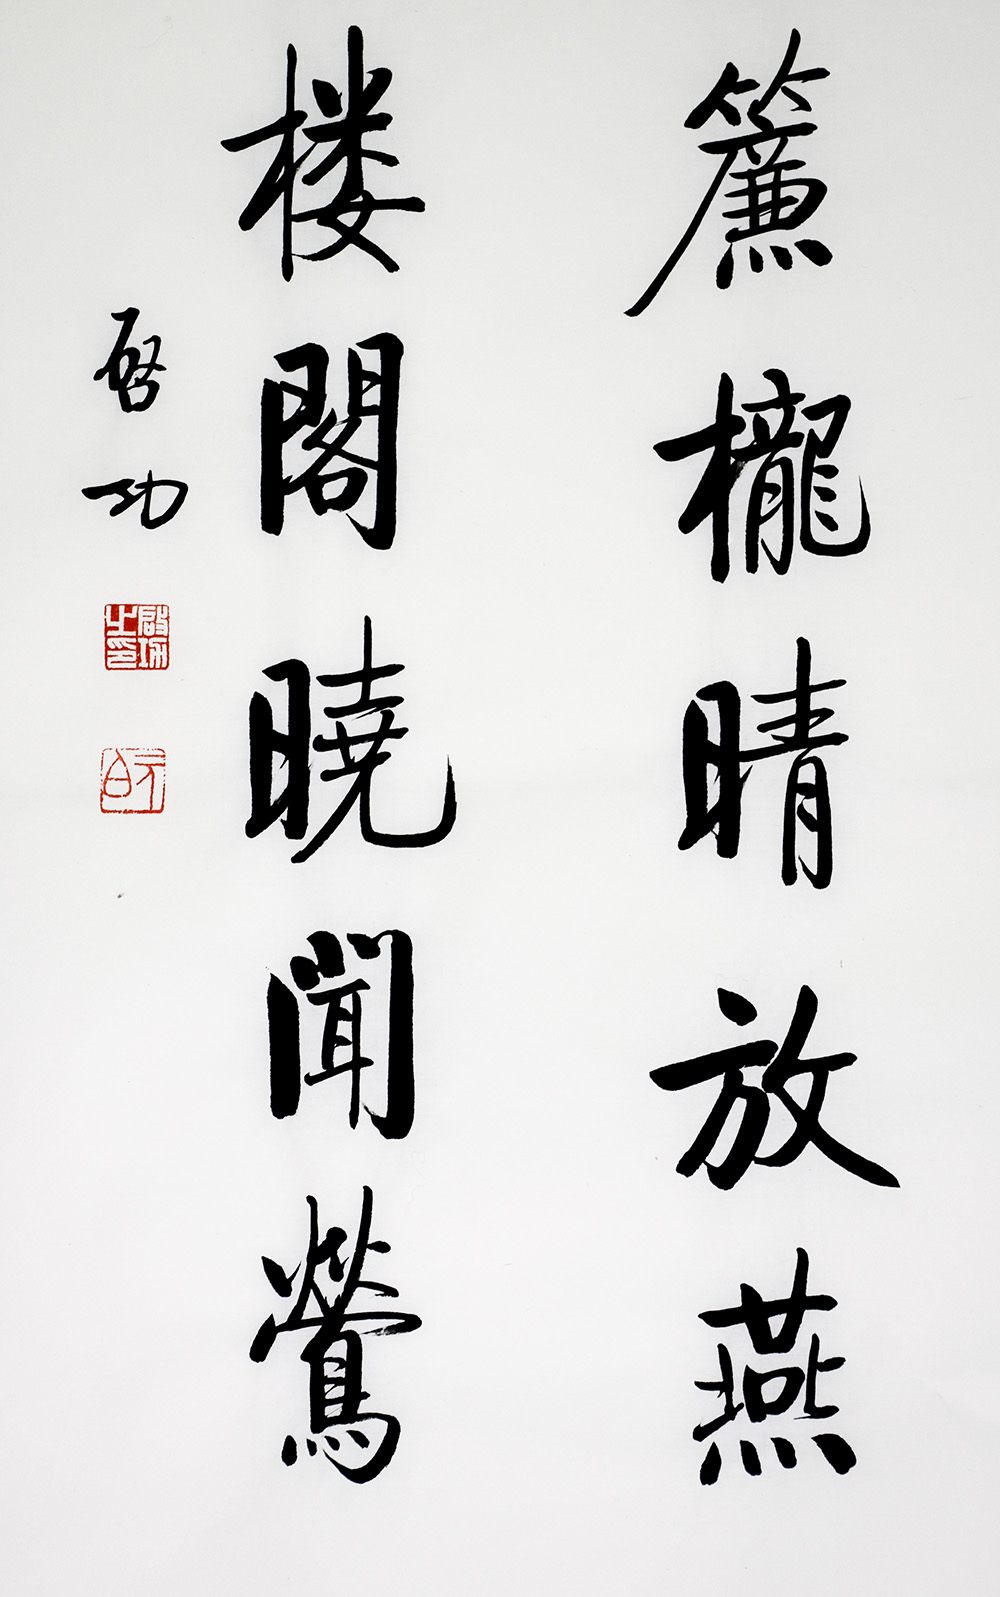 簾櫳晴放燕
楼閣曉聞鶯
啓功
啓功之印
元白